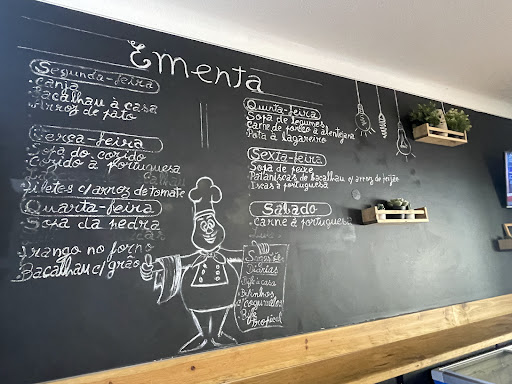 Ementa
Segunda-feira
.Canja
.Bacalhau à casa
.Arroz de pato
Terça-feira
.Sopa do cozido
.Cozido à portuguesa
Filetes c/arroz de tomate
Quarta-feira
.Sopa da pedra
.Frango no forno
.Bacalhau c/grão
Quinta-feira
Sopa de legumes
Carne de porco à alentejana
Pota à lagareiro
Sexta-feira
.Sopa de peixe
.Pataniscas de bacalhau c/arroz de feijão
.Iscas à portuguesa
Sábado
.Carne à portuguesa
Diárias
.Bife à casa
.Bifinhos
c/cogumelos
.Bife
tropical